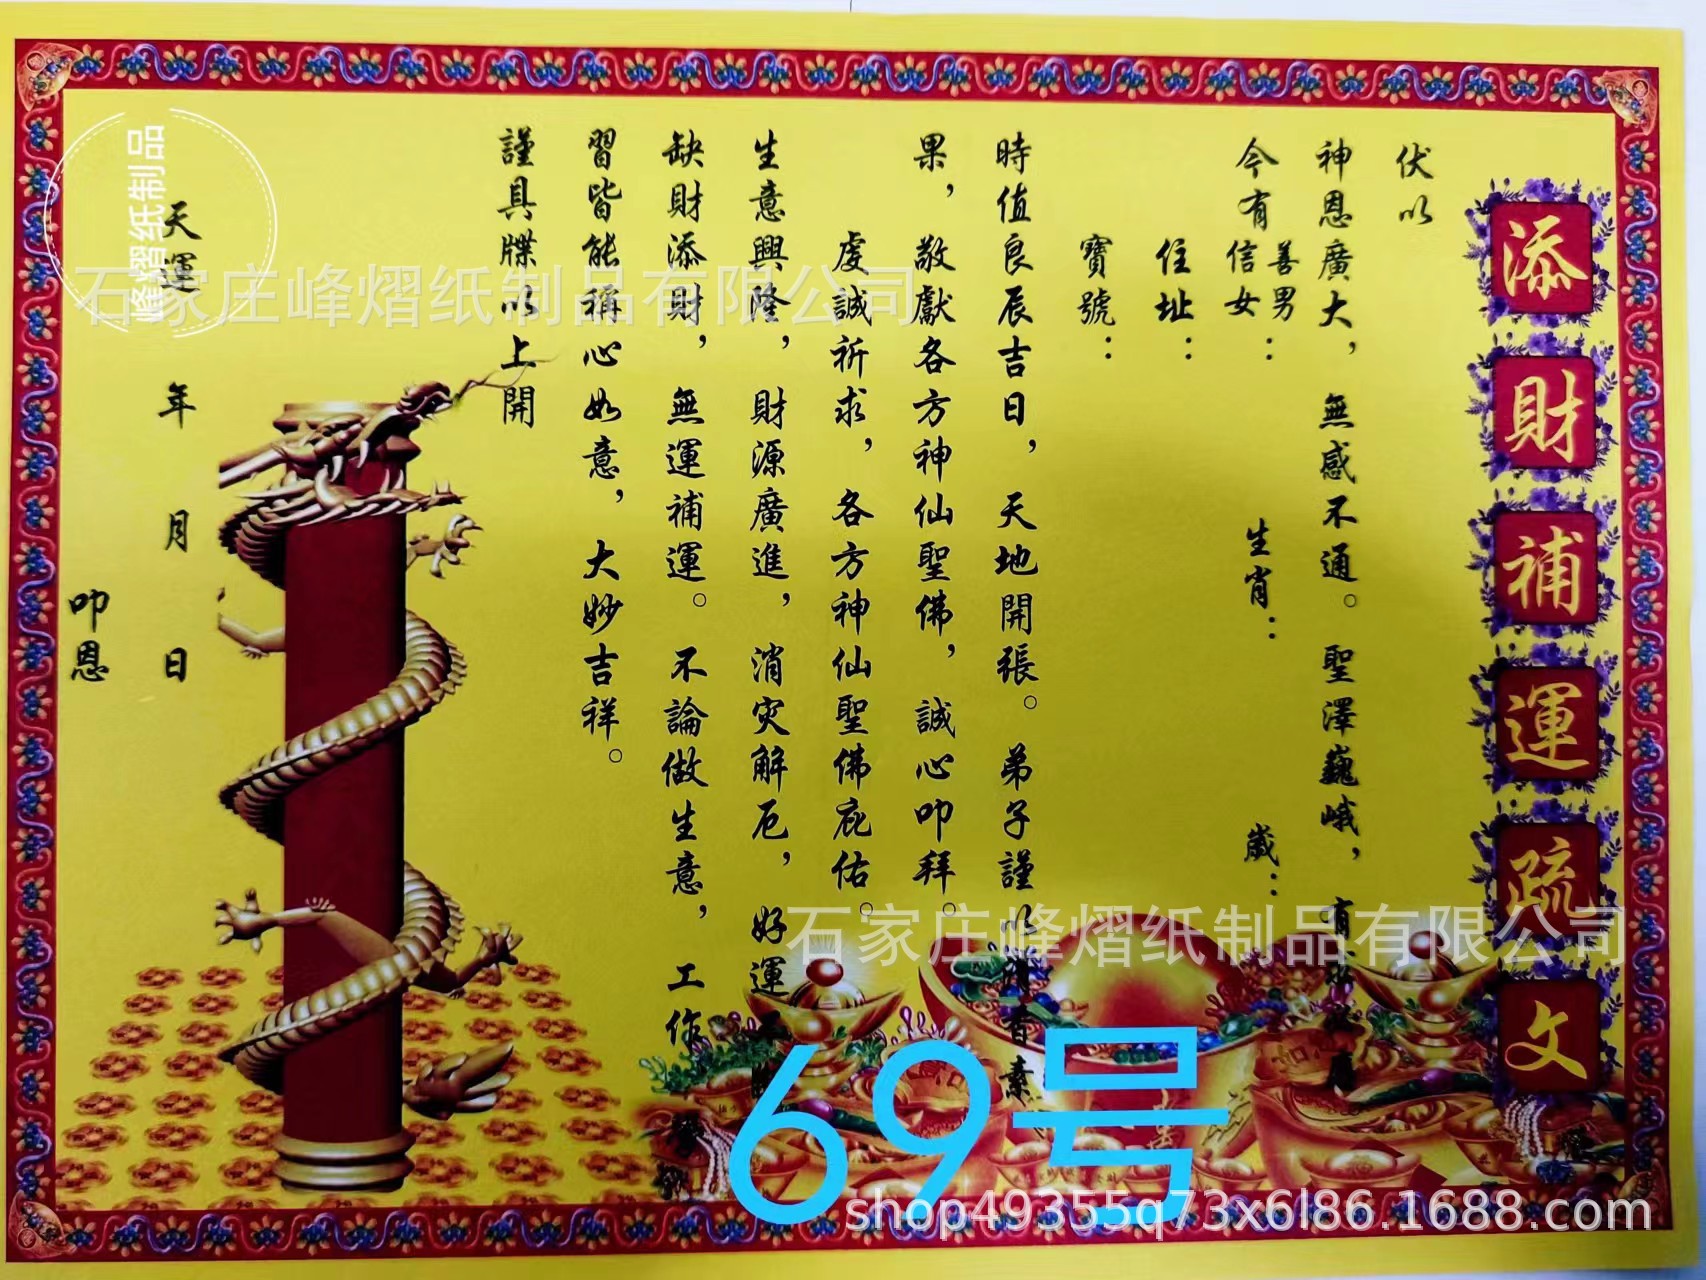 添財補運疏文
伏以
神恩廣大，無感不通。聖澤巍峨，有
今有善男信女：生肖：歲：
住址：
寶號：
時值良辰吉日，天地開張。弟子謹以香素
果，敬獻各方神仙聖佛，誠心叩拜。
虔誠祈求，各方神仙聖佛庇佑。
生意興隆，財源廣進，消灾解厄，好運
缺財添財，無運補運。不論做生意，工作
習皆能稱心如意，大妙吉祥。
謹具牒以上開
天運 年 月 日
叩恩
峰熠纸制品
石家庄峰熠纸制品有限公司
石家庄峰熠纸制品有限公司
69号
shop49355q73x6l86.1688.com